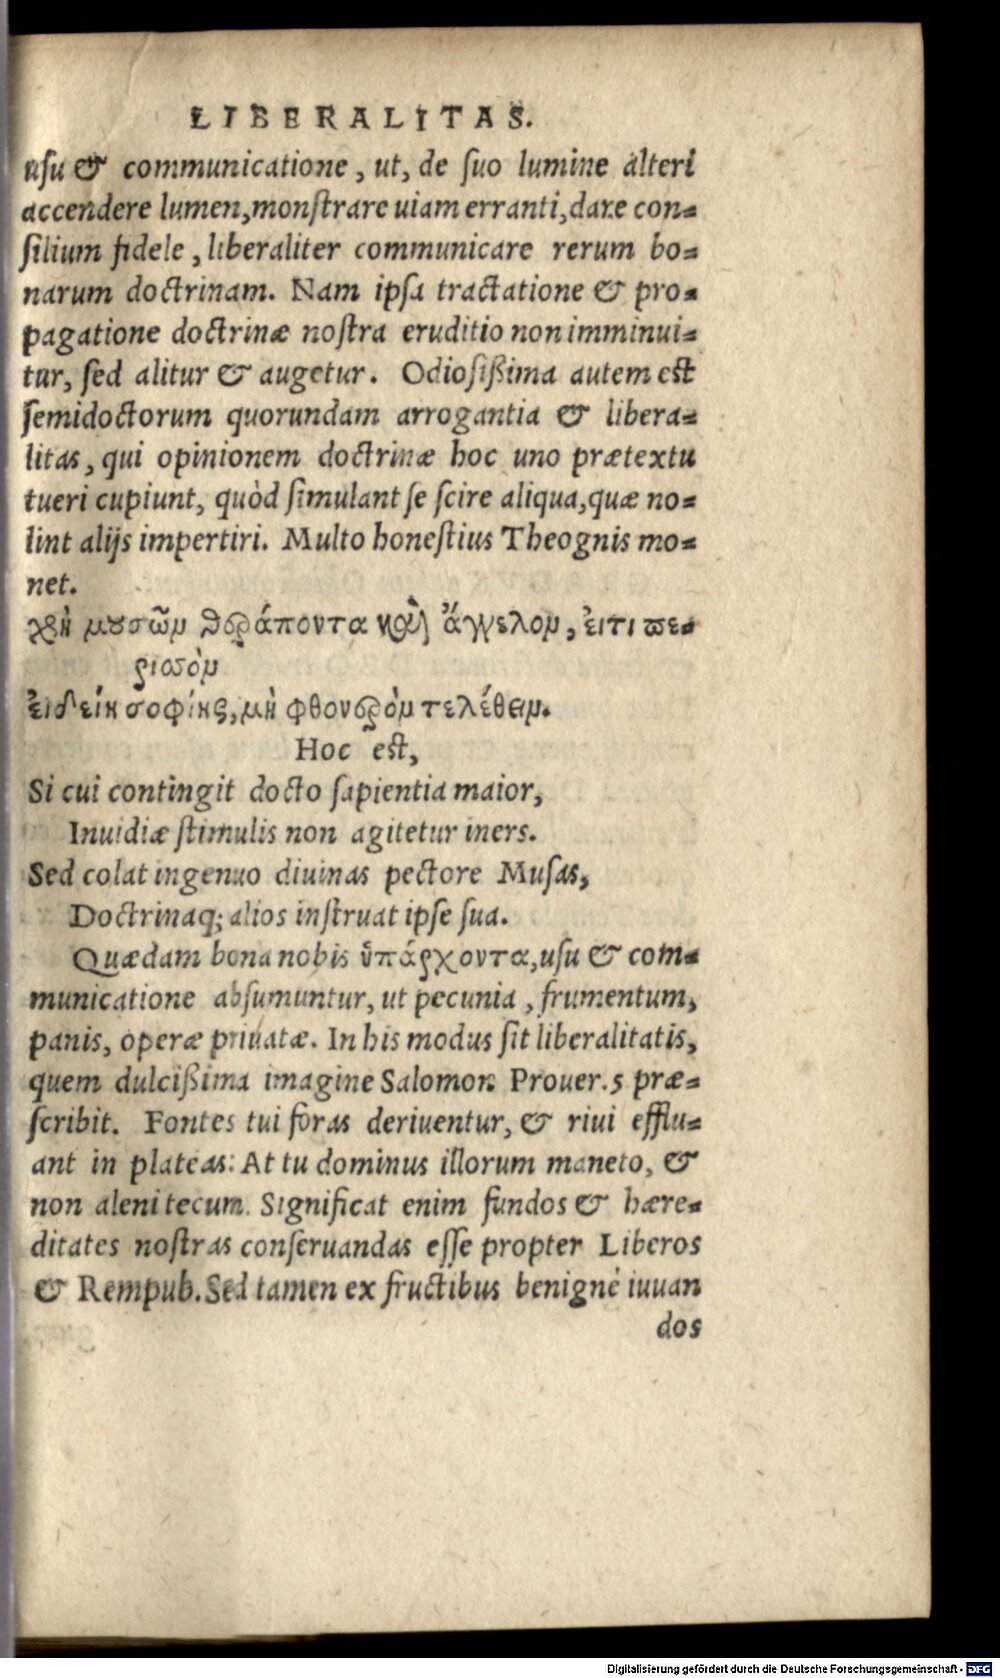 LIBERALITAS.
usu & communicatione, ut, de suo lumine alteri
accendere lumen, monstrare uiam erranti, dare con=
silium fidele, liberaliter communicare rerum bo=
narum doctrinam. Nam ipsa tractatione & pro=
pagatione doctrinæ nostra eruditio non imminui=
tur, sed alitur & augetur. Odiosißima autem est
semidoctorum quorundam arrogantia & libera=
litas, qui opinionem doctrinæ hoc uno prætextu
tueri cupiunt, quòd simulant se scire aliqua, quæ no=
lint alijs impertiri. Multo honestius Theognis mo=
net.
χρὴ μουσῶν θεράποντα καὶ ἄγγελον, ἐιτι πε=
ρισσὸν
ἐιδείη σοφίης, μὴ φθονερὸν τελέθειν.
Hoc est,
Si cui contingit docto sapientia maior,
Inuidiæ stimulis non agitetur iners.
Sed colat ingenuo diuinas pectore Musas,
Doctrinaq; alios instruat ipse sua.
Quædam bona nobis ὑπάρχοντα, usu & com=
municatione absumuntur, ut pecunia, frumentum,
panis, operæ priuatæ. In his modus sit liberalitatis,
quem dulcißima imagine Salomon Prouer. 5 præ=
scribit. Fontes tui foras deriuentur, & riui efflu=
ant in plateas: At tu dominus illorum maneto, &
non aleni tecum. Significat enim fundos & hære=
ditates nostras conseruandas esse propter Liberos
& Rempub. Sed tamen ex fructibus benignè iuuan
dos
Digitalisierung gefördert durch die Deutsche Forschungsgemeinschaft - DFG